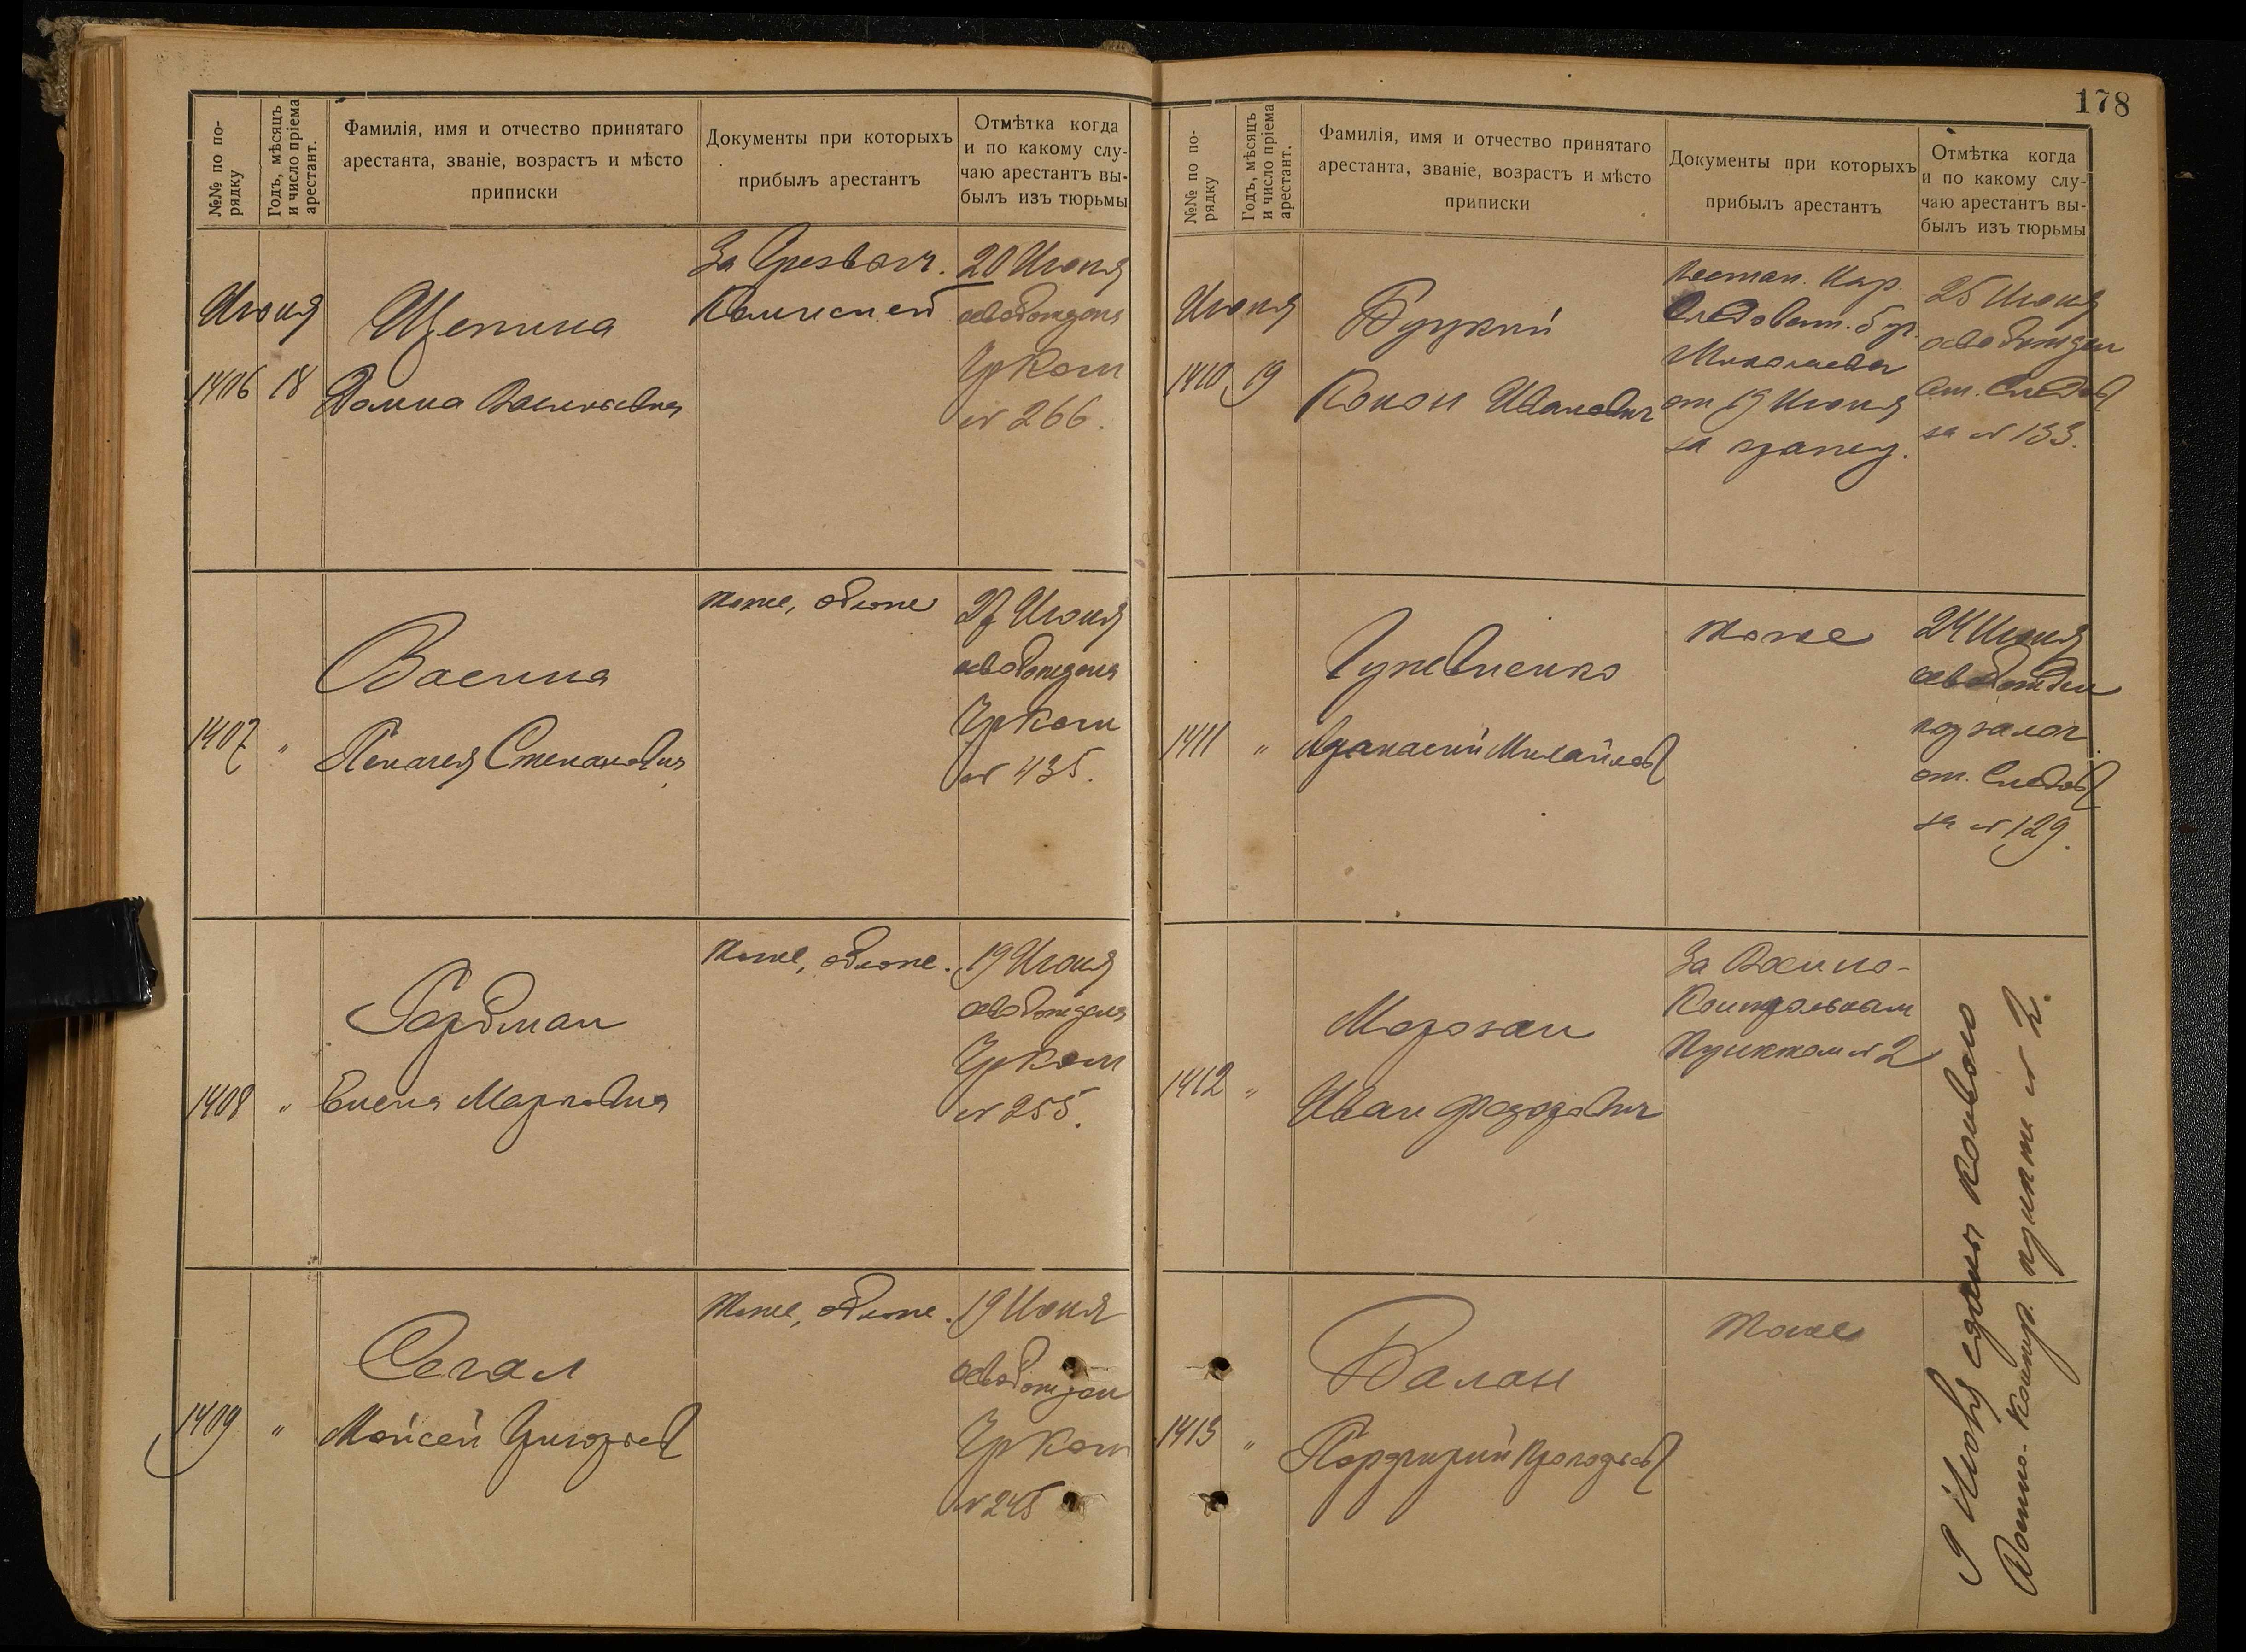 №№ по по-
рядку
Годъ, мѣсяцъ
и число пріема
арестант.
Фамилія, имя и отчество принятаго
арестанта, званіе, возрастъ и мѣсто
приписки
Документы при которыхъ
прибылъ арестантъ
Отмѣтка когда
и по какому слу-
чаю арестантъ вы-
былъ изъ тюрьмы
Июня
1406 18
Щепина
Домна Васильевна
За Чрезвыч.
Комиссией
20 Июня
освобождена
Чрком
№ 266.
1407 "
Васина
Пелагея Степановна
тоже, одноже
27 Июня
освобождена
Чрком
№ 435.
1408 "
Гордман
Елена Марковна
тоже, одноже.
19 Июня
освобождена
Чрком
№ 255.
1409 "
Сегал
Мойсей Григорьев
тоже, одноже.
19 Июня
освобожден
Чрком
№ 245
178
№№ по по-
рядку
Годъ, мѣсяцъ
и число пріема
арестант.
Фамилія, имя и отчество принятаго
арестанта, званіе, возрастъ и мѣсто
приписки
Документы при которыхъ
прибылъ арестантъ
Отмѣтка когда
и по какому слу-
чаю арестантъ вы-
былъ изъ тюрьмы
Июня
1410 19
Буцкий
Конон Иванович
Постан. Нар.
Следоват. гор.
Николаева
от 19 Июня
за
25 Июня
освобожден
от. Следов
за № 133.
1411 "
Афанасий Михайлов
тоже
24 Июня
освобожден
под залог
от. Следов
за № 129.
1412 "
Морозан
Иван Федорович
За Военно-
Контрольным
Пунктом № 2
1413 "
Балан
Порфирий
тоже
9 Июля сданы конвою
Военно-контр. пункта № 2.